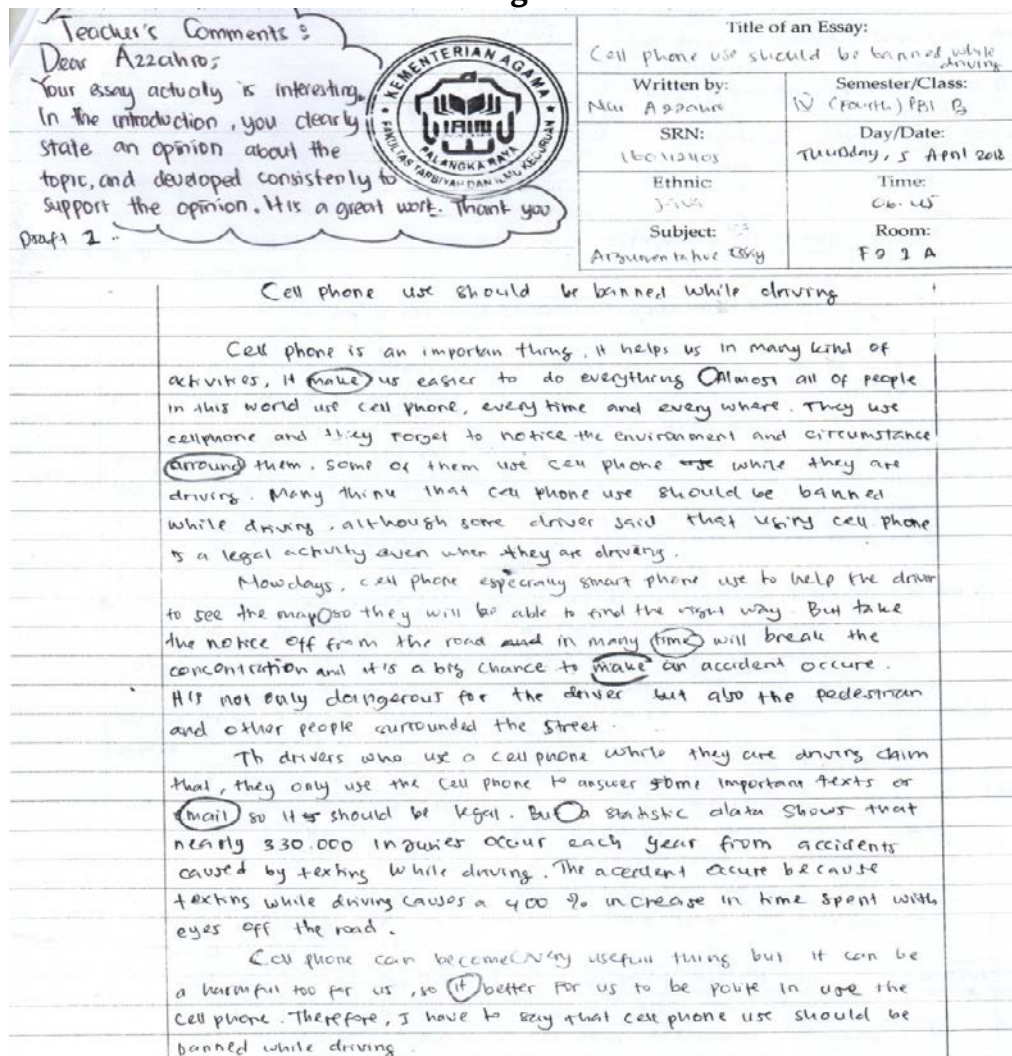 Teacher's Comments :
Dear Azzahro;
Your essay actualy is interesting.
In the introduction, you clearly
state an opinion about the
topic, and developed consistenly to
support the opinion. It is a great work. Thank you
Draft 1
KEMENTERIAN AGAMA
IAIN
PALANGKA RAYA
FAKULTAS TARBIYAH DAN ILMU KEGURUAN
Title of an Essay:
Cell phone use should be banned while
driving
Written by:
Semester/Class:
Nur Azzahro
IV (Fourth) PBI B
SRN:
Day/Date:
Thursday, 5 April 2018
Ethnic:
Time:
Java
06.45
Subject:
Room:
Argumentative Essay
Cell phone use should be banned while driving
Cell phone is an importan thing, it helps us in many kind of
activities, it make us easier to do everything Almost all of people
in this world use cell phone, every time and every where. They use
cellphone and they forget to notice the environment and circumstance
arround them. some of them use cell phone while they are
driving. Many think that cell phone use should be banned
while driving, although some driver said that using cell phone
is a legal activity even when they are driving.
Nowdays, cell phone especially smart phone use to help the driver
to see the map so they will be able to find the right way. But take
the notice off from the road and in many time will break the
concentration and it's a big chance to make an accident occure.
It's not only dangerous for the driver but also the pedestrian
and other people surrounded the street.
Th drivers who use a cell phone while they are driving claim
that, they only use the cell phone to answer some important texts or
email so it should be legal. But a statistic data shows that
nearly 330.000 injuries occur each year from accidents
caused by texting while driving. The accedent accure because
texting while driving causes a 400 % increase in time spent with
eyes off the road.
Cell phone can become very usefull thing but it can be
a harmful too for us, so it better for us to be polite in use the
cell phone. Therefore, I have to say that cell phone use should be
banned while driving.